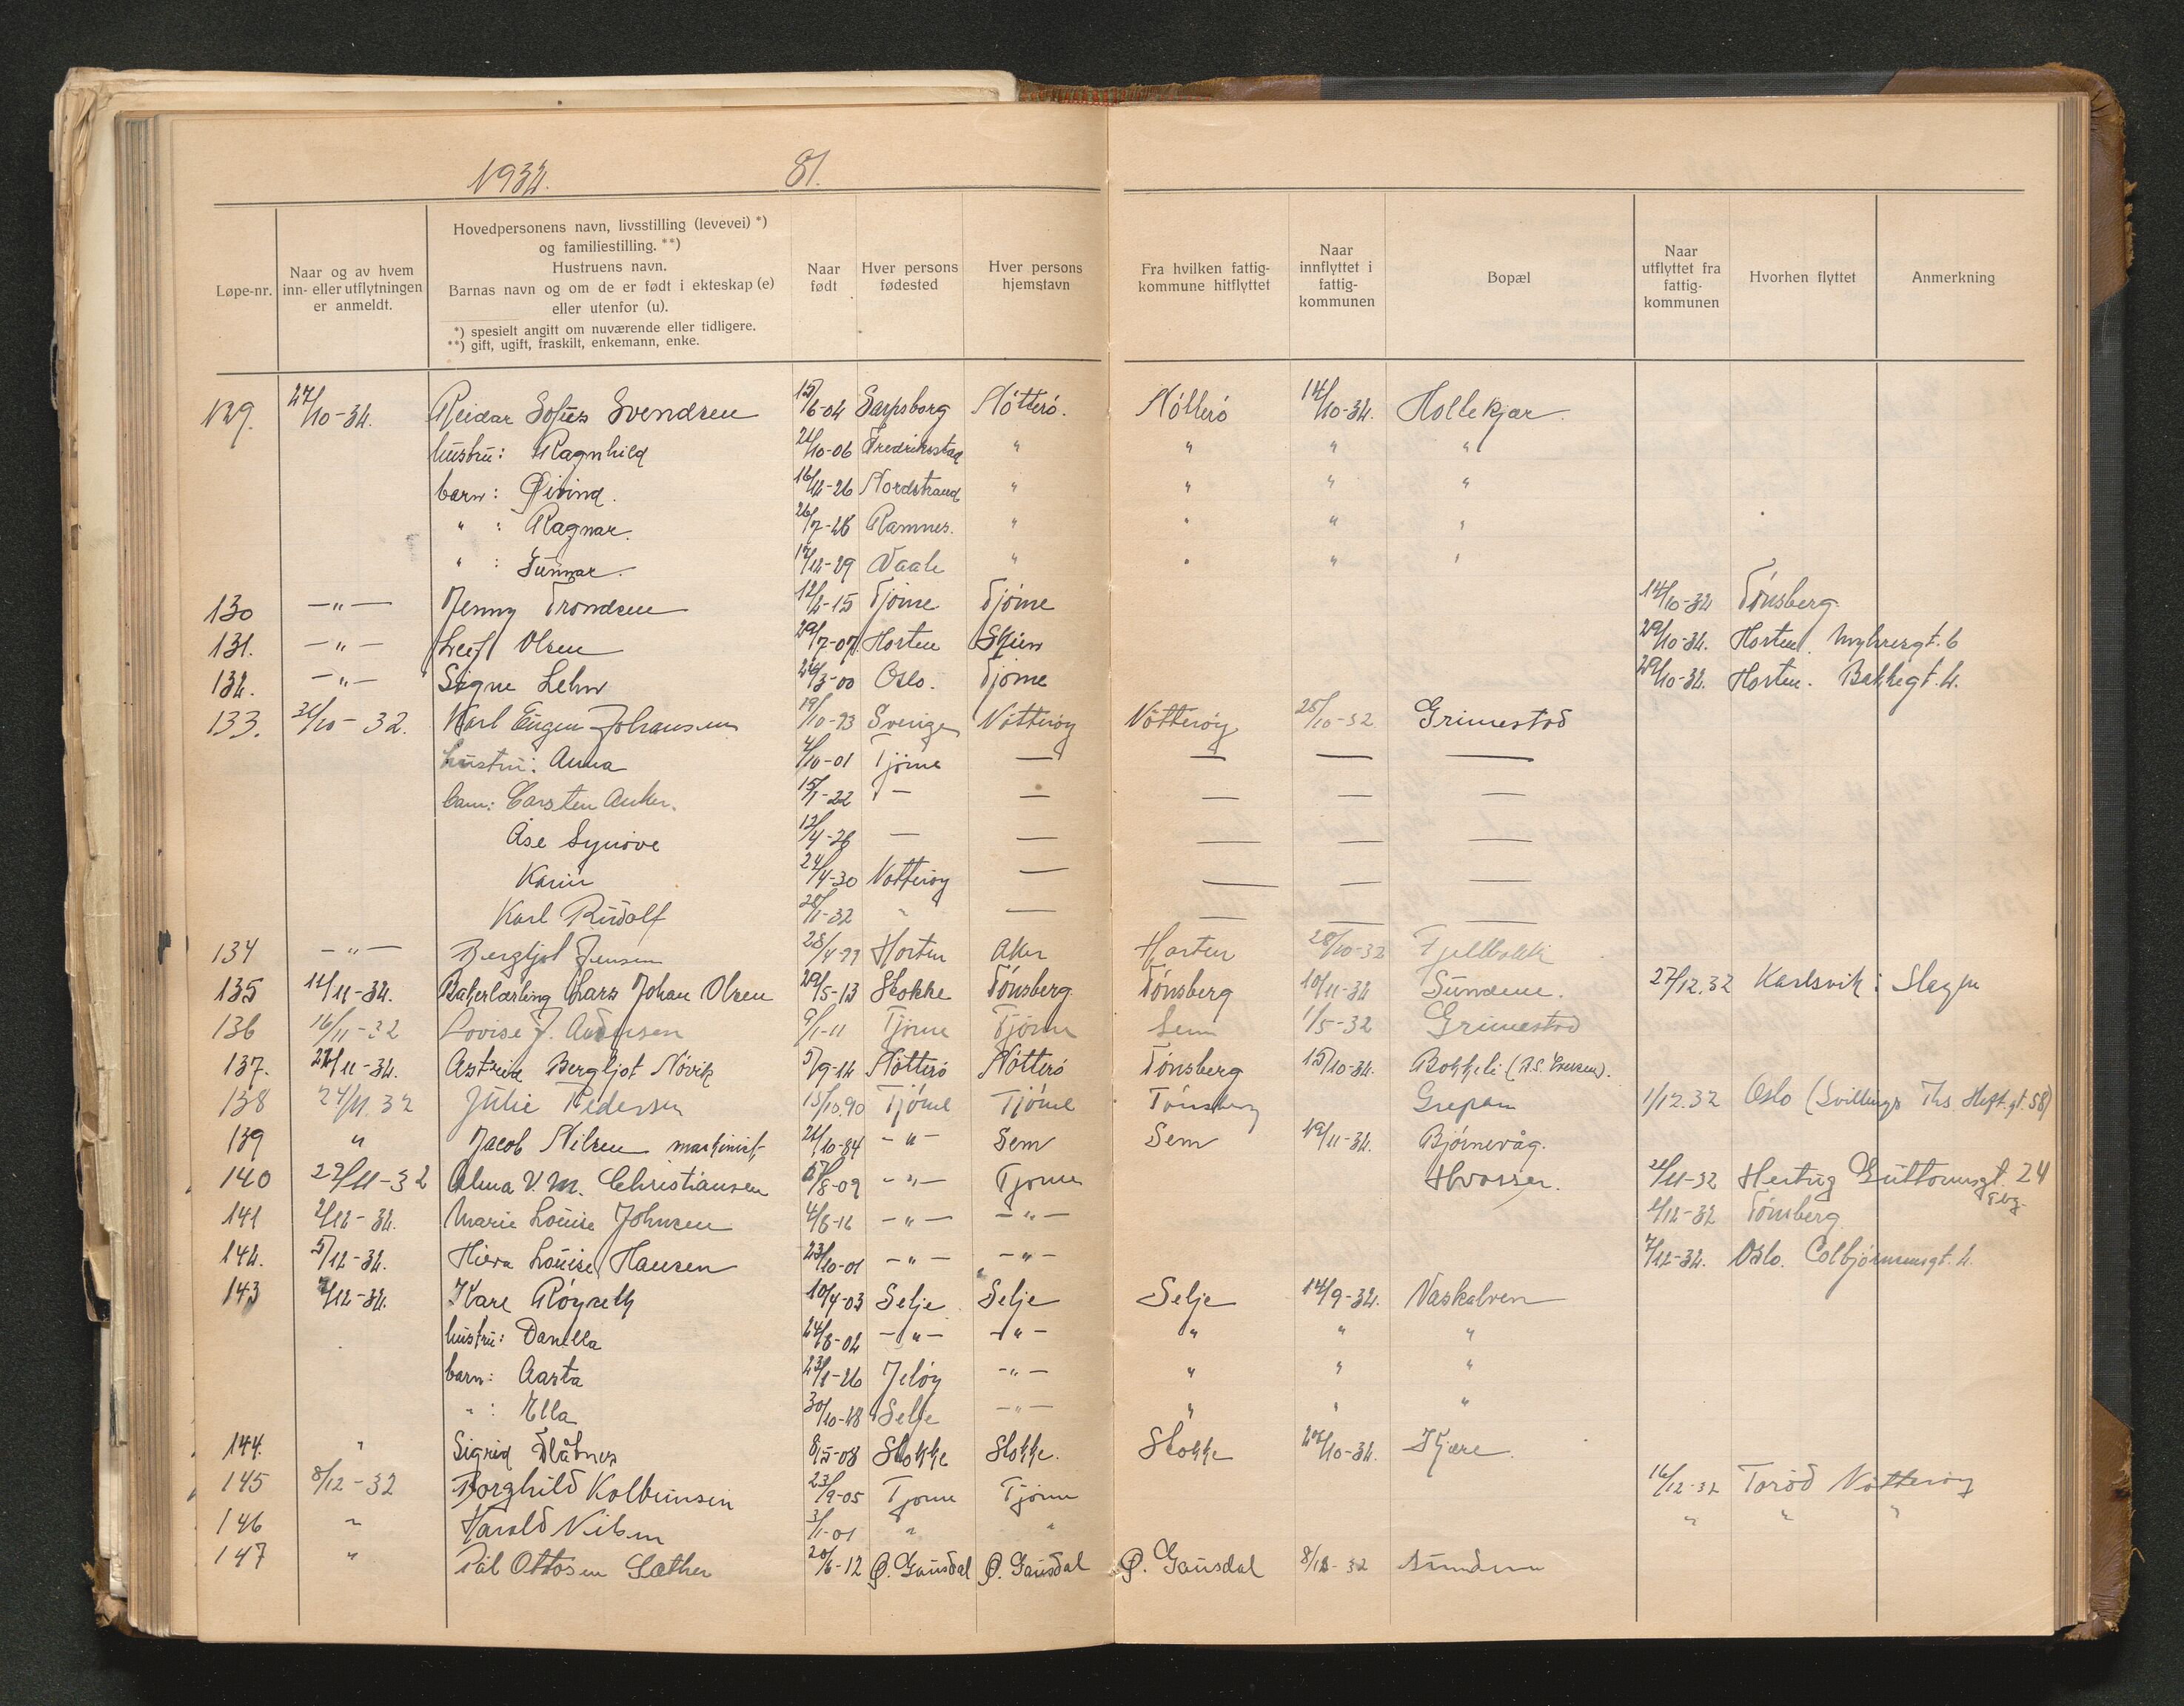 1932. 81.
Løpe-nr.
Naar og av hvem
inn- eller utflytningen
er anmeldt.
Hovedpersonens navn, livsstilling (levevei) *)
og familiestilling. **)
Hustruens navn.
Barnas navn og om de er født i ekteskap (e)
eller utenfor (u).
*) spesielt angitt om nuværende eller tidligere.
**) gift, ugift, fraskilt, enkemann, enke.
Naar
født
Hver persons
fødested
Hver persons
hjemstavn
Fra hvilken fattig-
kommune hitflyttet
Naar
innflyttet i
fattig-
kommunen
Bopæl
Naar
utflyttet fra
fattig-
kommunen
Hvorhen flyttet
Anmerkning
129. 27/10-32. Reidar Sofus Svendsen 15/6-04 Sarpsborg Nøtterø. Nøtterø 14/10-32. Hollekjær.
hustru: Ragnhild 21/10-06 Fredrikstad " " " "
barn: Øivind. 16/12-26 Nordstrand " " " "
" : Ragnar. 26/7-28 Ramnes. " " " "
" : Gunnar. 17/12-29 Vaale " " " "
130 —"— Jenny Trondsen 12/2-15 Tjøme Tjøme 14/10-32 Tønsberg.
131. —"— Leif Olsen 29/7-07 Horten Skien 29/10-32. Horten.
132. —"— Signe Lehn Oslo. Tjøme 29/10-32. Horten. Bakkegt. 2.
133. 31/10-32. Karl Eugen Johansen 19/10-93 Sverige Nøtterøy Nøtterøy 25/10-32 Grimestad
hustru: Anna 4/10-01 Tjøme — — — —
barn: Carsten Anker. 15/1-22 — — — — —
Åse Synøve 12/4-26 — — — — —
Karin 24/4-30 Nøtterøy — — — —
Karl Rudolf 28/1-32 " — — — —
134 —"— Bergljot Jensen 28/4-99 Horten Aker Horten 28/10-32
135 11/11-32. Bakerlærling Lars Johan Olsen 29/5-13 Stokke Tønsberg. Tønsberg 10/11-32 Sundene. 27/12.32 Karlsvik i Slagen
136 16/11-32 Lovise J. Andersen 9/1-11 Tjøme Tjøme Sem 1/5-32 Grimestad
137. 22/11-32. Astrid Bergljot Nøvik 5/9-14 Nøtterø Nøtterø Tønsberg 15/10-32.
138 24/11.32 Julie Pedersen 15/10.90 Tjöme Tjöme Tønsberg Grepan 1/12.32 Oslo (Svillings Ths. Heft. gt. 58)
139 " Jacob Nilsen maskinist 21/10-84 —"— Sem Sem 19/11-32. Bjørnevåg.
140 29/11-32 Alma V. M. Christiansen —"— Tjøme Hvasser. 2/11-32 Hertug Guttormsgt. 24
Tbg.
141 2/12-32. Marie Louise Johnsen 4/8-16 —"— —"— 2/12-32 Tønsberg
142. 5/12-32. Louise Hansen 23/10-01 —"— —"— 7/12-32. Oslo. Colbjørnsensgt. 2.
143 7/12-32. Kåre Røyseth 10/4-03 Selje Selje Selje 14/9-32. Vaskalven
hustru: Danella 24/8-02 —"— —"— " " "
barn: Aasta 23/1-26 Jeløy —"— " " "
" : Ella 30/10-28 Selje —"— " " "
144. " Sigrid 8/5-08 Stokke Stokke. Stokke 27/10-32. Kjære.
145 8/12-32 Borghild Kolbeinsen 23/9-05 Tjøme Tjøme 16/12-32 Torød Nøtterøy
146 " Harald Nilsen 3/1-01 " " " " "
147 " Pål Ottosen Sæther 20/6-12 Ø. Gausdal Ø. Gausdal Ø. Gausdal 8/12-32 Sundene